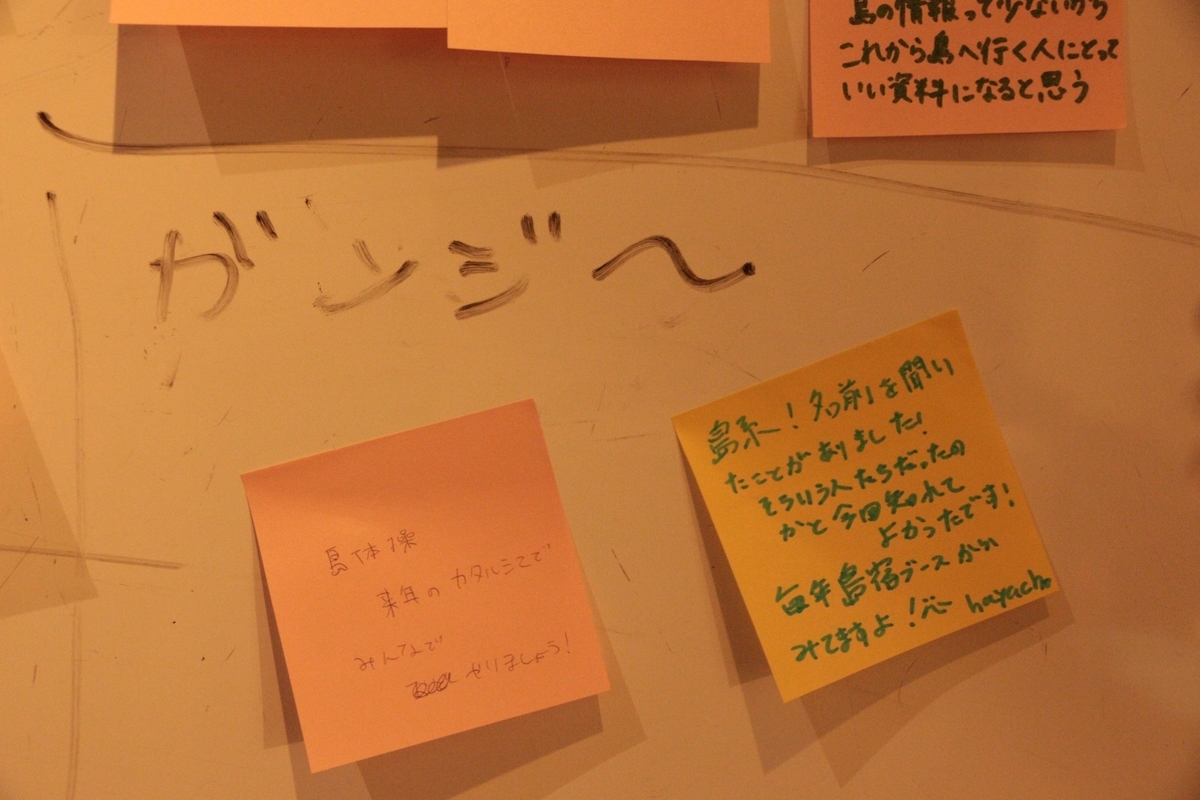 島の情報って少ないから
これから島へ行く人にとって
いい資料になると思う
ガンジ〜
島体操
来年のカタルシマで
みんなで
やりましょう!
島系!名前を聞い
たことがありました!
そういう人たちだったの
かと今回知れて
よかったです!
毎年島宿ブースから
みてますよ! hayacho